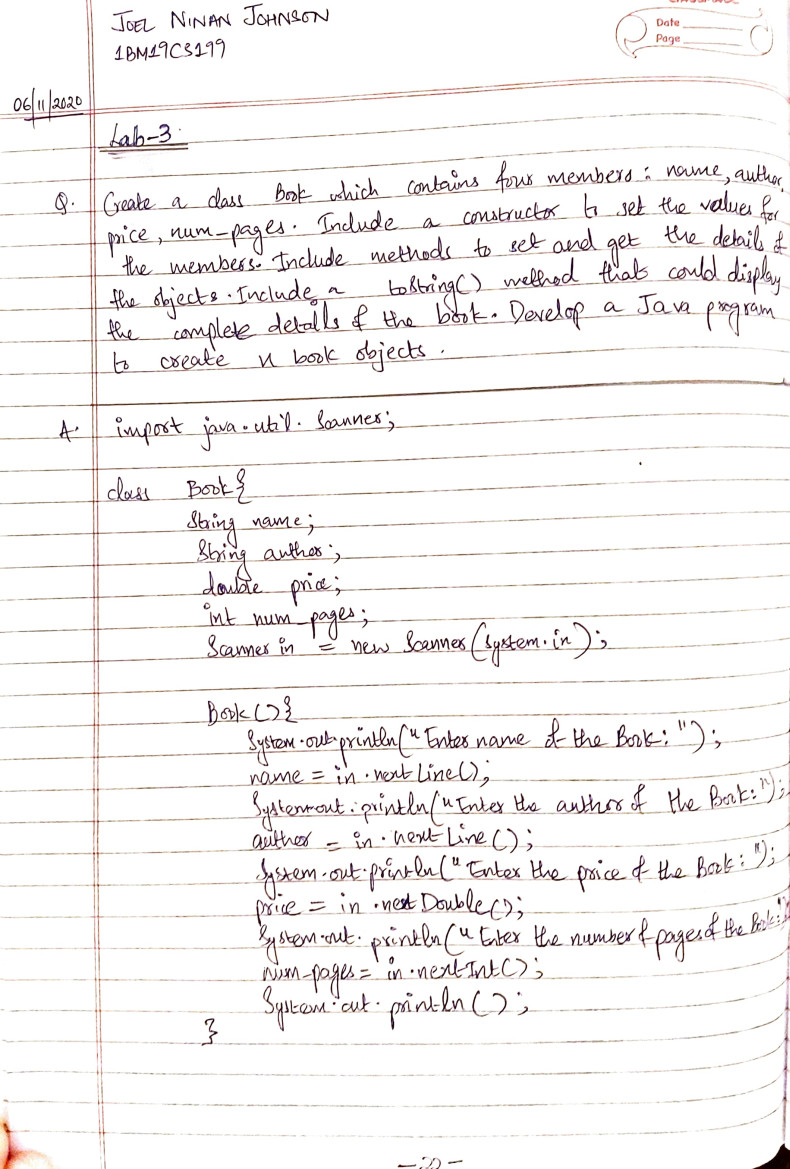 JOEL NINAN JOHNSON
1BM19CS199
Date
Page
06/11/2020
Lab-3.
Q. Create a class Book which contains four members: name, author,
price, num_pages. Include a constructor to set the values for
the members. Include methods to set and get the details of
the objects. Include a toString() method that could display
the complete details of the book. Develop a Java program
to create n book objects.
A. import java.util.Scanner;
class Book{
String name;
String author;
double price;
int num_pages;
Scanner in = new Scanner(System.in);
Book(){
System.out.println("Enter name of the Book:");
name = in.nextLine();
System.out.println("Enter the author of the Book:");
author = in.nextLine();
System.out.println("Enter the price of the Book:");
price = in.nextDouble();
System.out.println("Enter the number of pages of the Book:")
num_pages = in.nextInt();
System.out.println();
}